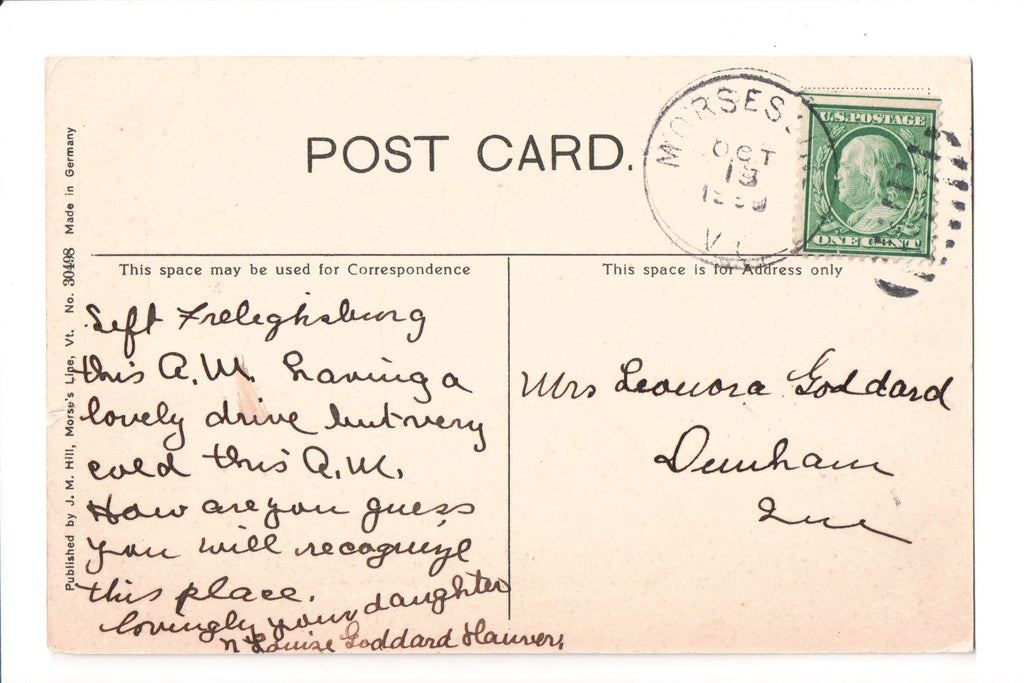 POST CARD.
MORSES
OCT
13
U.S. POSTAGE
ONE CENT
Published by J. M. Hill, Morse's Line, Vt. No. 30498 Made in Germany
This space may be used for Correspondence
This space is for Address only
Left Freleghsburg
this A.M. having a
lovely drive but very
cold this A.M.
How are you guess
you will recognize
this place.
lovingly your daughter
Louise Goddard
Mrs Leonora Goddard
Dunham
Que